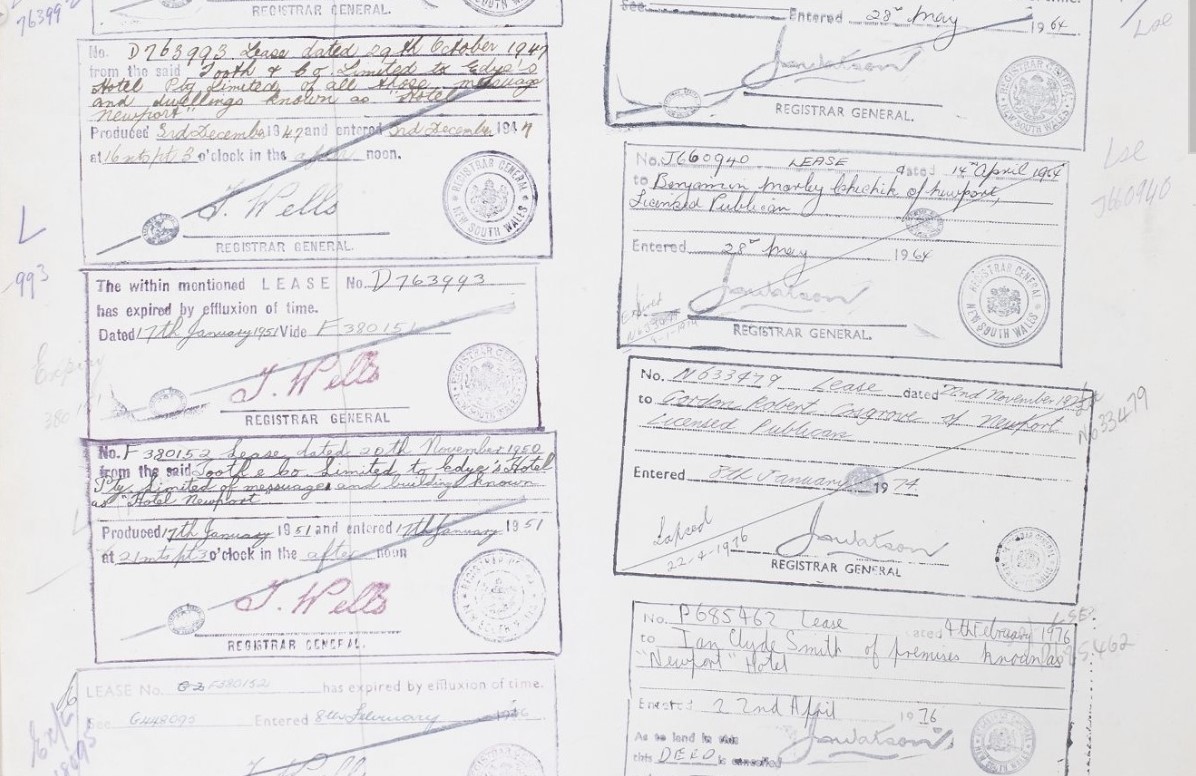 REGISTRAR GENERAL.
No. D763993 Lease dated 29th October 1947
from the said Tooth & Co Limited to Edye's
Hotel Pty Limited of all those messuage
and dwellings known as "Hotel
Newport"
Produced 3rd December 1947 and entered 3rd December 1947
at 16 mts pt 3 o'clock in the after noon.
J. Wells
REGISTRAR GENERAL.
REGISTRAR GENERAL
NEW SOUTH WALES
L
993
The within mentioned LEASE No. D763993
has expired by effluxion of time.
Dated 17th January 1951 Vide F380151
J. Wells
REGISTRAR GENERAL
No. F380152 Lease dated 20th November 1950
from the said Tooth & Co Limited to Edye's Hotel
Pty Limited of messuages and buildings known
as "Hotel Newport"
Produced 17th January 1951 and entered 17th January 1951
at 21 mts pt 3 o'clock in the after noon
J. Wells
REGISTRAR GENERAL.
LEASE No. F380152 has expired by effluxion of time.
See G448092 Entered 8th February
Entered 28th May 1964
Jawatson
REGISTRAR GENERAL.
REGISTRAR GENERAL
NEW SOUTH WALES
Lse
No. J660940 LEASE dated 14th April 1964
to Benjamin Morley Chichik of Newport,
Licensed Publican
Entered 28th May 1964
Jawatson
REGISTRAR GENERAL.
REGISTRAR GENERAL
NEW SOUTH WALES
Lse
J660940
No. N633479 Lease dated 22nd November 1973
to Gordon Robert of Newport
Licensed Publican
Entered 8th January 1974
Lapsed
22-4-1976
Jawatson
REGISTRAR GENERAL
N633479
No. P685462 Lease dated 4th February 1976
to Ian Clyde Smith of premises known as
"Newport" Hotel
Entered 22nd April 1976
As to land in this
this DEED is cancelled
Jawatson